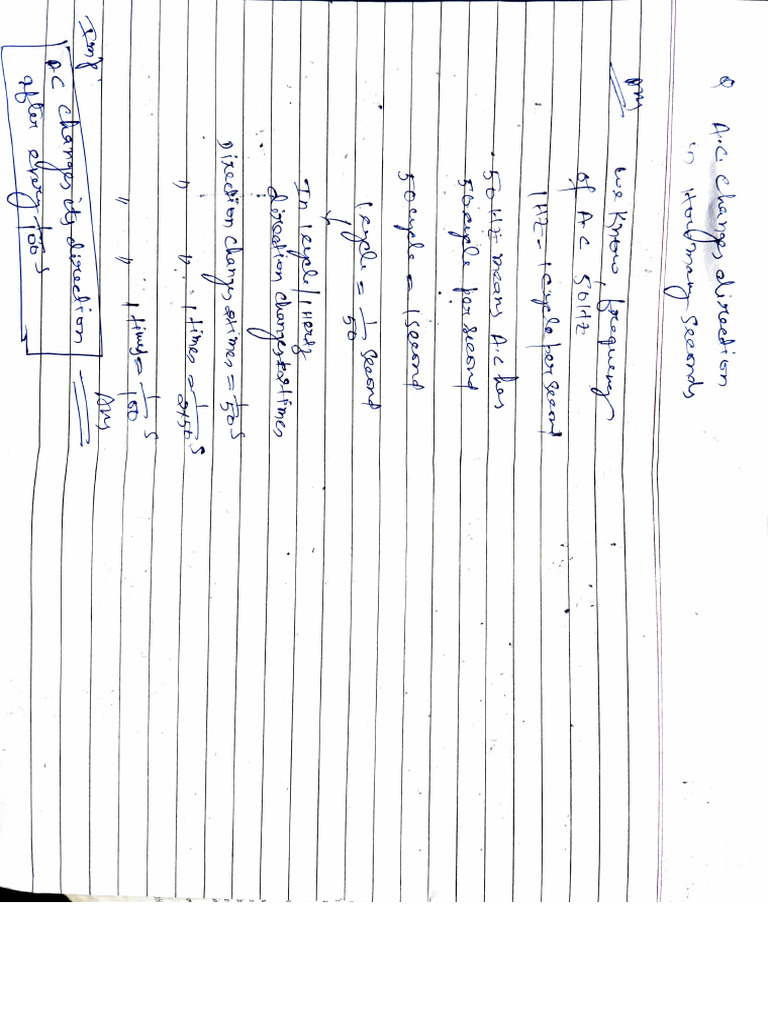 Q A.C changes direction
in How many seconds
Ans we know, frequency
of A.C 50Hz
1HZ = 1 cycle per second
50Hz means A.C has
50 cycle per second
50 cycle = 1 second
1 cycle = 1/50 second
In 1 cycle/1 Hertz
direction changes 2 times
Direction changes 2 times = 1/50 s
" " 1 times = 1/2×50 s
" " 1 times = 1/100 s
Ans
Imp.
AC changes its direction
after every 1/100 s